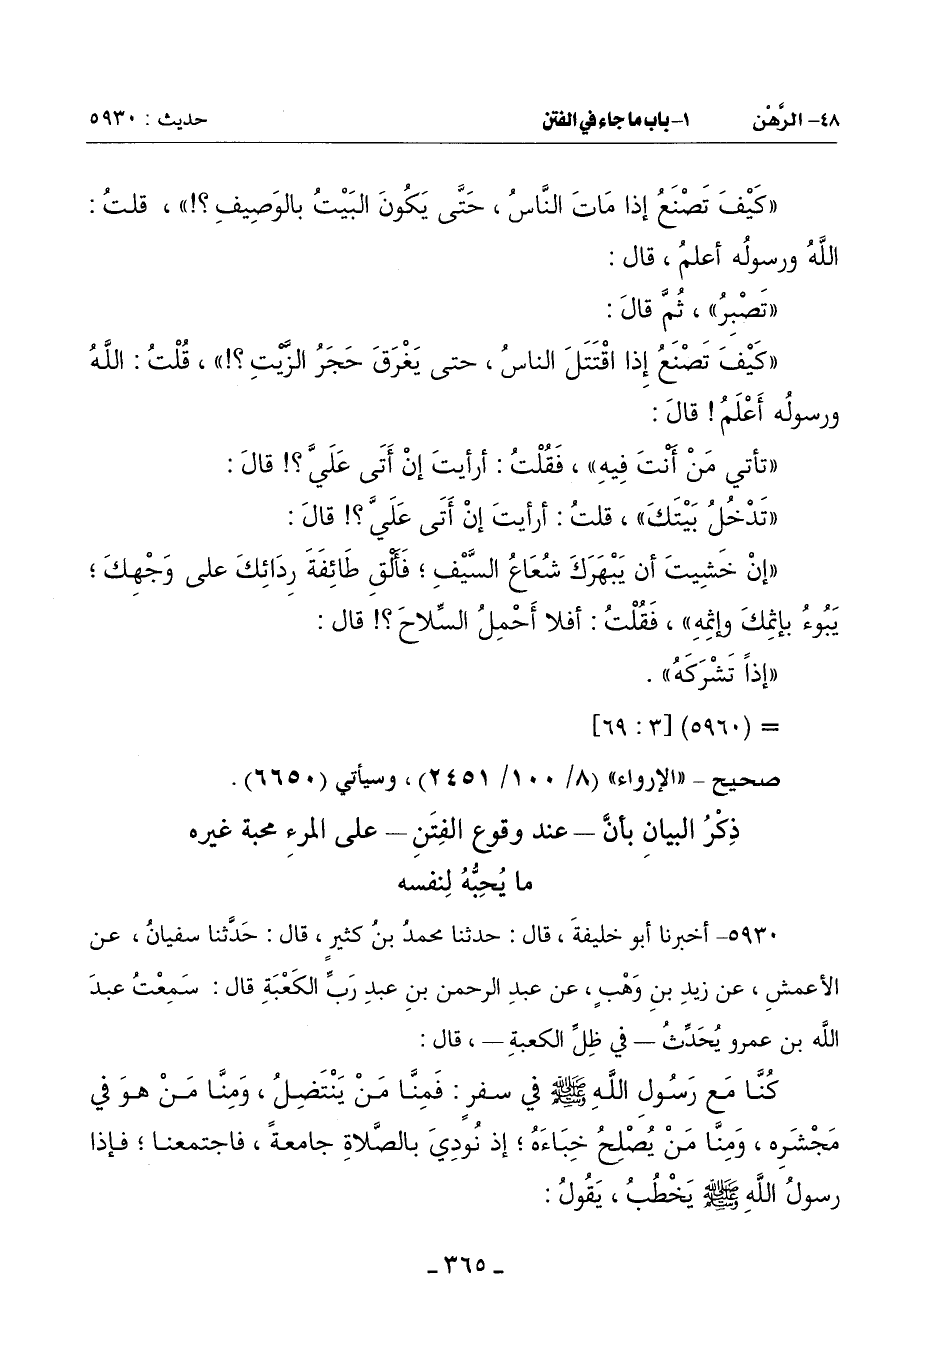 ٤٨- الرَّهْن ١- باب ما جاء في الفتن حديث : ٥٩٣٠
«كَيْفَ تَصْنَعُ إذا مَاتَ النَّاسُ ، حَتَّى يَكُونَ البَيْتُ بالوَصِيفِ ؟!» ، قلتُ :
اللَّهُ ورسولُه أعلمُ ، قال :
«تَصْبِرُ» ، ثُمَّ قالَ :
«كَيْفَ تَصْنَعُ إذا اقْتَتَلَ الناسُ ، حتى يَغْرَقَ حَجَرُ الزَّيْتِ ؟!» ، قُلْتُ : اللَّهُ
ورسولُه أَعْلَمُ ! قالَ :
«تأتي مَنْ أَنْتَ فِيهِ» ، فَقُلْتُ : أرأيتَ إنْ أَتَى عَلَيَّ ؟! قالَ :
«تَدْخُلُ بَيْتَكَ» ، قلتُ : أرأيتَ إنْ أَتَى عَلَيَّ ؟! قالَ :
«إنْ خَشِيتَ أن يَبْهَرَكَ شُعَاعُ السَّيْفِ ؛ فَأَلْقِ طَائِفَةَ رِدَائِكَ على وَجْهِكَ ؛
يَبُوءُ بإثمِكَ وإثمِهِ» ، فَقُلْتُ : أفلا أَحْمِلُ السِّلاحَ ؟! قال :
«إذاً تَشْرَكَهُ» .
= (٥٩٦٠) [٣ : ٦٩]
صحيح - «الإرواء» (٨/ ١٠٠/ ٢٤٥١) ، وسيأتي (٦٦٥٠) .
ذِكْرُ البيانِ بأنَّ – عند وقوع الفِتَنِ – على المرءِ محبة غيره
ما يُحِبُّهُ لِنفسه
٥٩٣٠- أخبرنا أبو خليفةَ ، قال : حدثنا محمدُ بنُ كثيرٍ ، قال : حَدَّثنا سفيانُ ، عن
الأعمشِ ، عن زيدِ بنِ وَهْبٍ ، عن عبدِ الرحمن بنِ عبدِ رَبِّ الكَعْبَةِ قال : سَمِعْتُ عبدَ
اللَّه بن عمرو يُحَدِّثُ – في ظِلِّ الكعبةِ – ، قال :
كُنَّا مَع رَسُولِ اللَّهِ ﷺ في سفرٍ : فَمِنَّا مَنْ يَنْتَضِلُ ، وَمِنَّا مَنْ هوَ في
مَجْشَرِه ، وَمِنَّا مَنْ يُصْلِحُ خِبَاءَهُ ؛ إذ نُودِيَ بالصَّلاةِ جامعةً ، فاجتمعنا ؛ فإذا
رسولُ اللَّهِ ﷺ يَخْطُبُ ، يَقُولُ :
ـ ٣٦٥ ـ